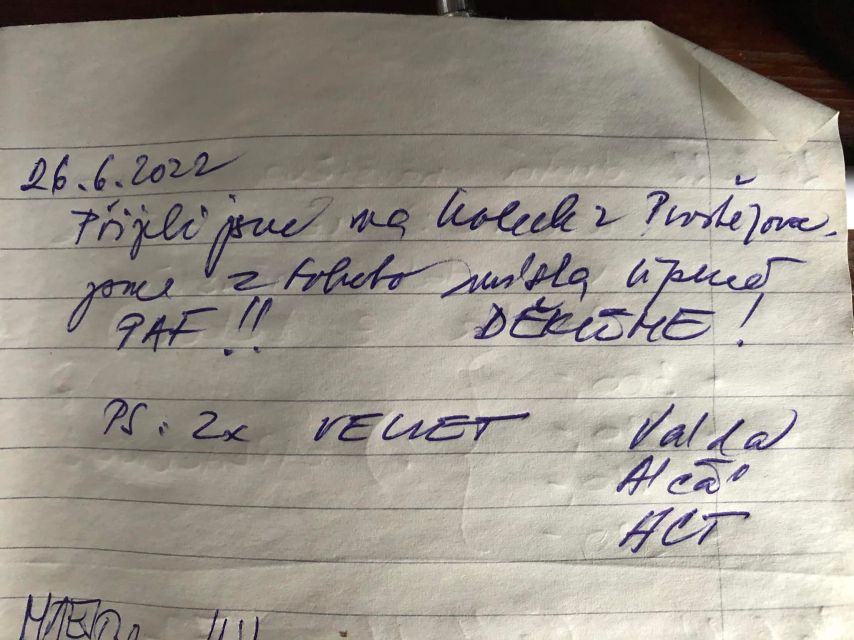 26.6.2022
Přijeli jsme na kolech z Prostějova.
jsme z tohoto místa úplně
PAF!! DĚKUJEME!
PS: 2x VELVET Valda